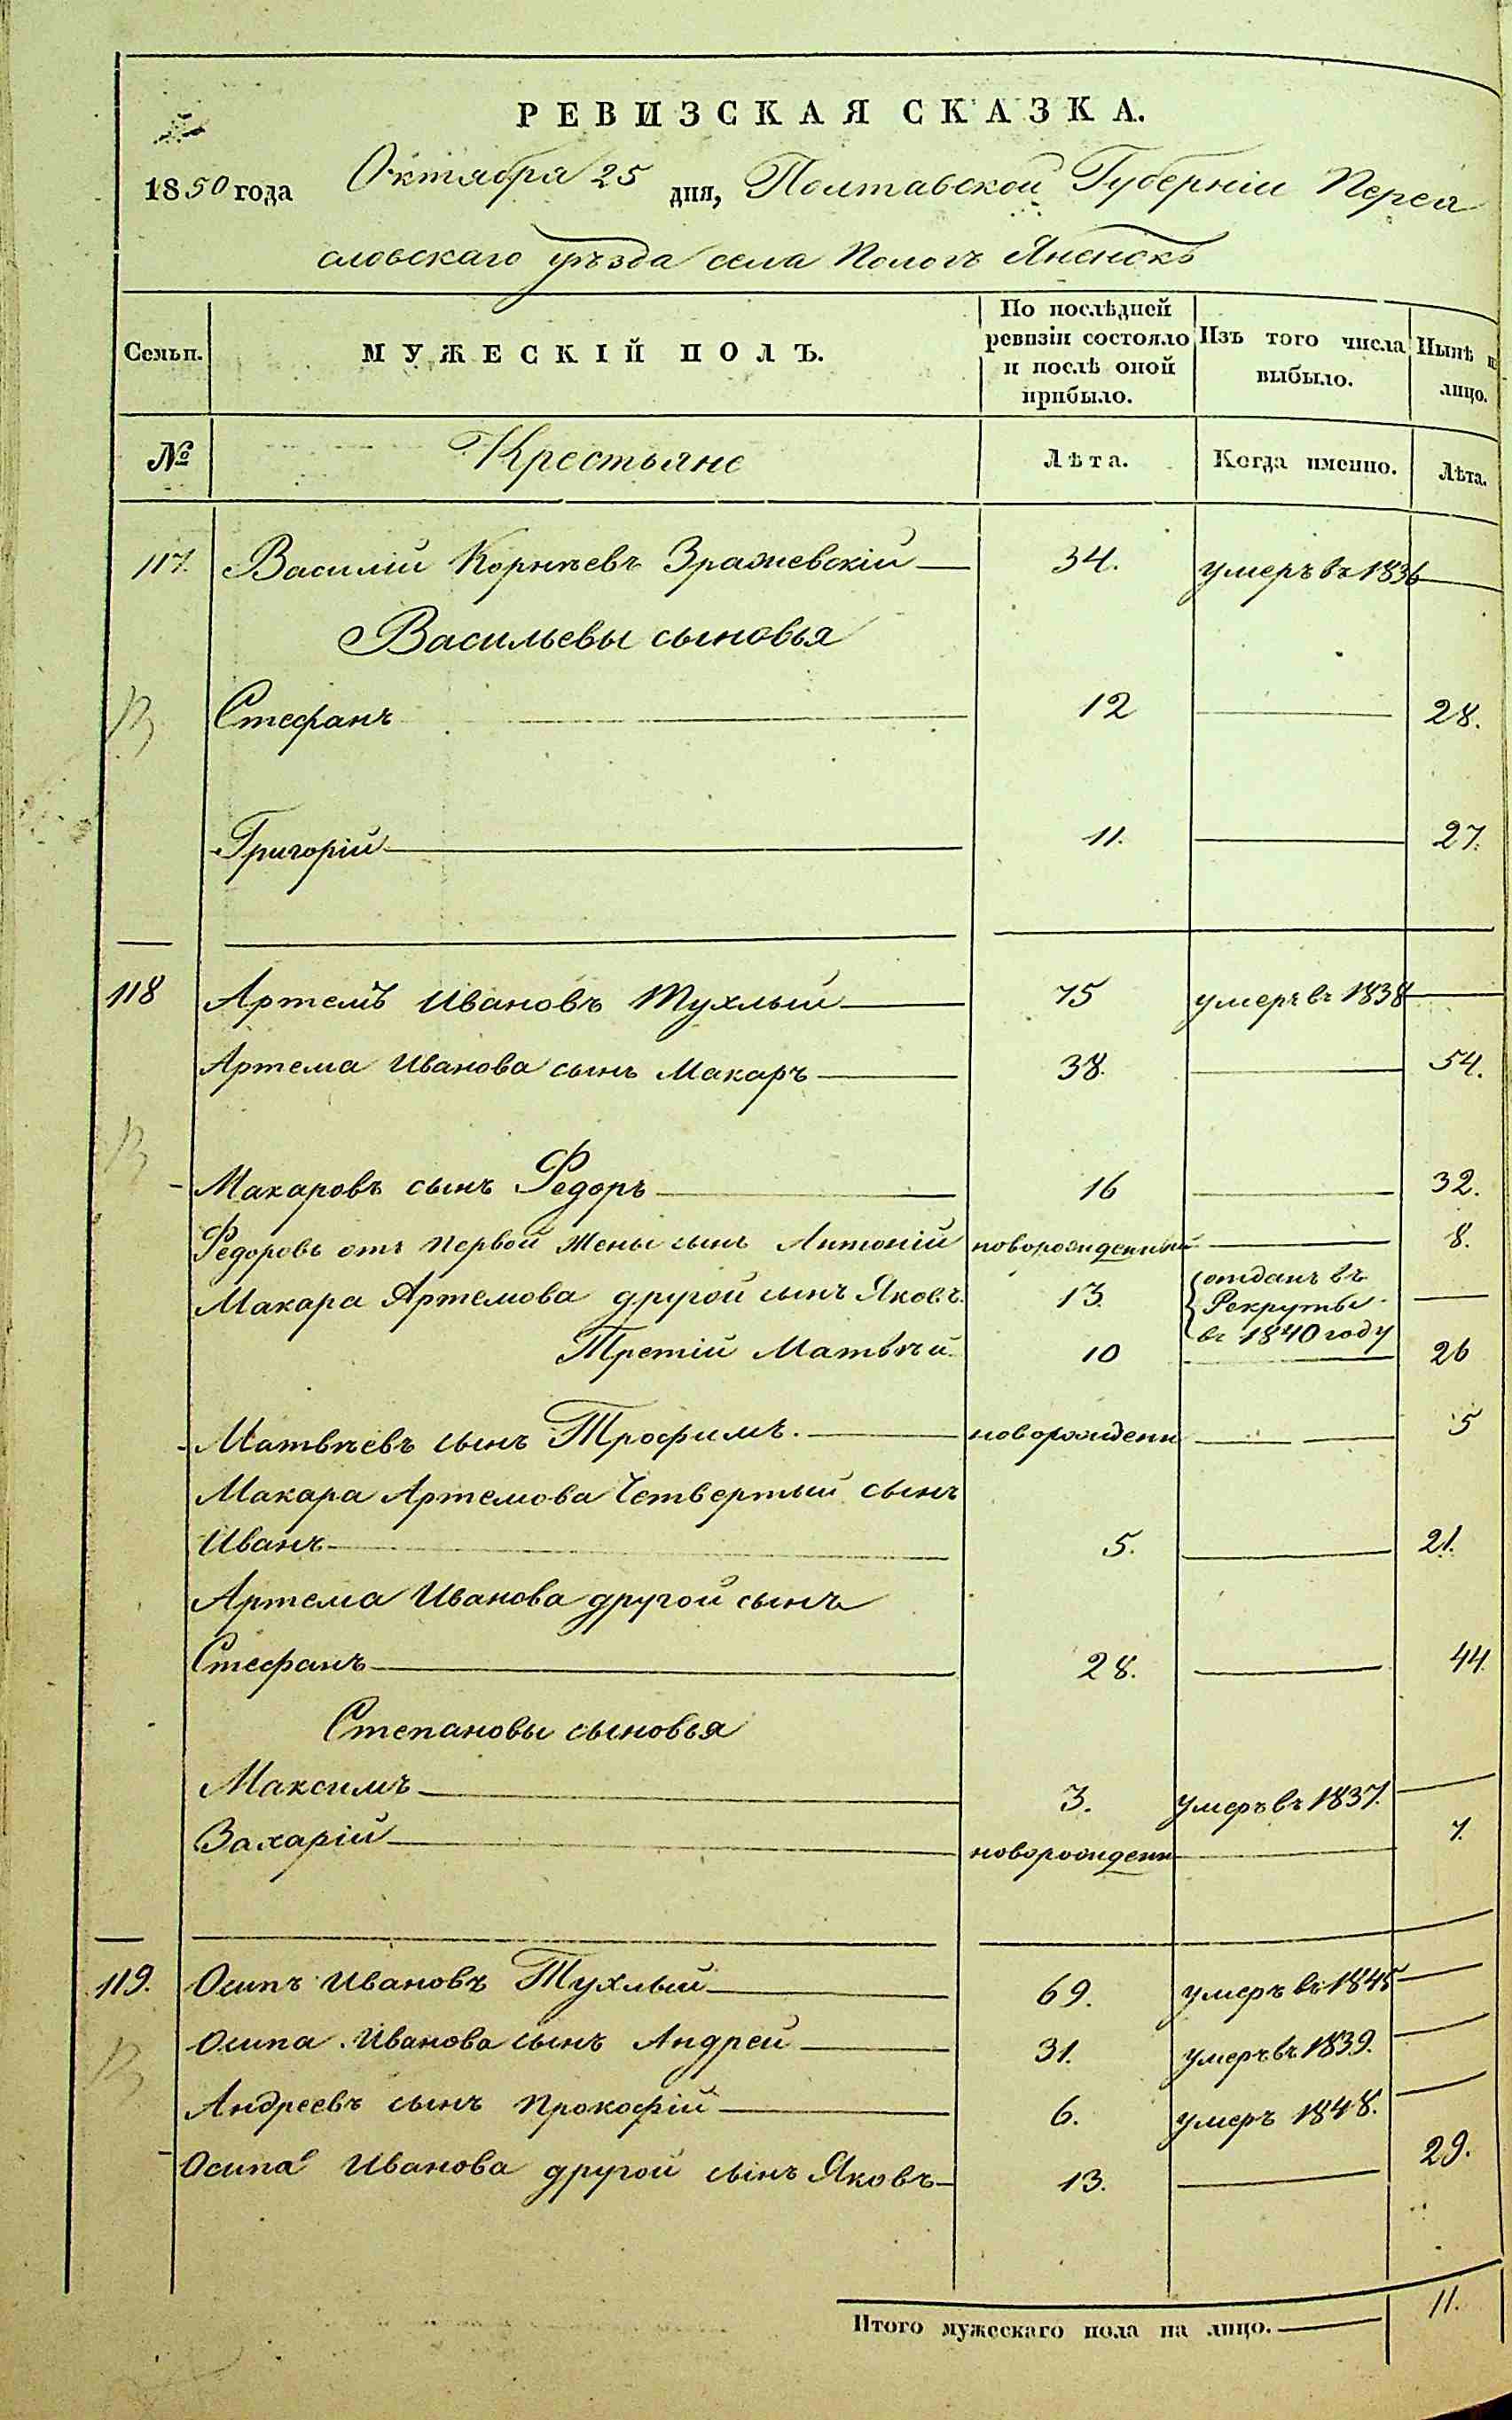 РЕВИЗСКАЯ СКАЗКА.
1850 года Октября 25 дня, Полтавской Губерніи Перея
словскаго уѣзда села Пологъ Яненокъ
Семьи. МУЖЕСКІЙ ПОЛЪ. По послѣдней ревизіи состояло и послѣ оной прибыло. Изъ того числа выбыло. Нынѣ н лицо.
№ Крестьяне Лѣта. Когда именно. Лѣта.
117. Василій Корнѣевъ Зражевскій 34. умеръ въ 1836
Васильевы сыновья
Стефанъ 12 28.
Григорій 11. 27.
118 Артемъ Ивановъ Тухлый 75 умеръ въ 1838
Артема Иванова сынъ Макаръ 38. 54.
Макаровъ сынъ Федоръ 16 32.
Федоровъ отъ первой жены сынъ Антоній новорожденный 8.
Макара Артемова другой сынъ Яковъ. 13. отданъ въ
Рекруты
въ 1840 году
Третій Матвѣй 10 26
Матвѣевъ сынъ Трофимъ. новорожден 5
Макара Артемова Четвертый сынъ
Иванъ 5. 21.
Артема Иванова другой сынъ
Стефанъ 28. 44.
Степановы сыновья
Максимъ 3. умеръ въ 1837.
Захарій новорожден 7.
119. Осипъ Ивановъ Тухлый 69. умеръ въ 1845
Осипа Иванова сынъ Андрей 31. умеръ въ 1839.
Андреевъ сынъ Прокофій 6. умеръ 1848.
Осипа Иванова другой сынъ Яковъ 13. 29.
Итого мужескаго пола на лицо. 11.